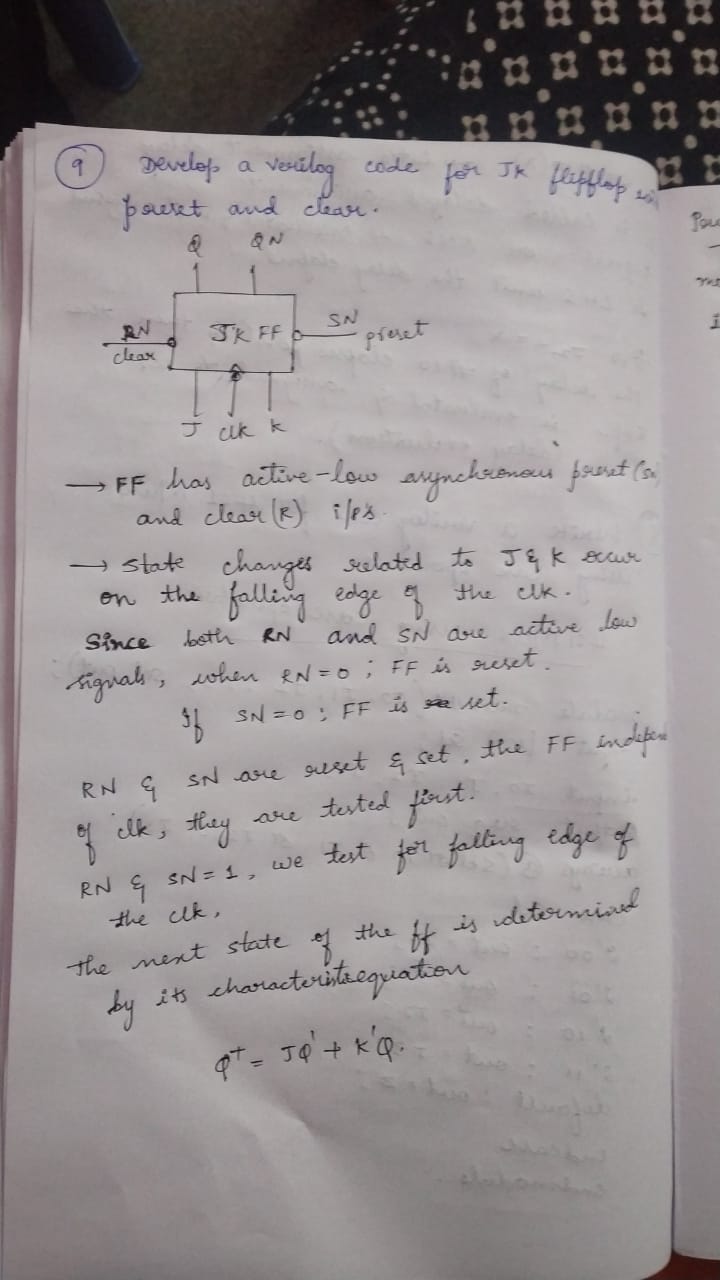 9 Develop a verilog code for JK flipflop
preset and clear.
Q QN
RN JK FF SN preset
clear
J clk K
→ FF has active-low asynchronous preset (SN
and clear (R) i/p's.
→ State changes related to J & K occur
on the falling edge of the clk.
Since both RN and SN are active low
signals, when RN=0 ; FF is reset.
If SN=0 ; FF is set.
RN & SN are reset & set, the FF indepen
of clk, they are tested first.
RN & SN=1, we test for falling edge of
the clk,
The next state of the ff is determined
by its characteristic equation
Q⁺ = JQ' + K'Q.
Pow
me
I